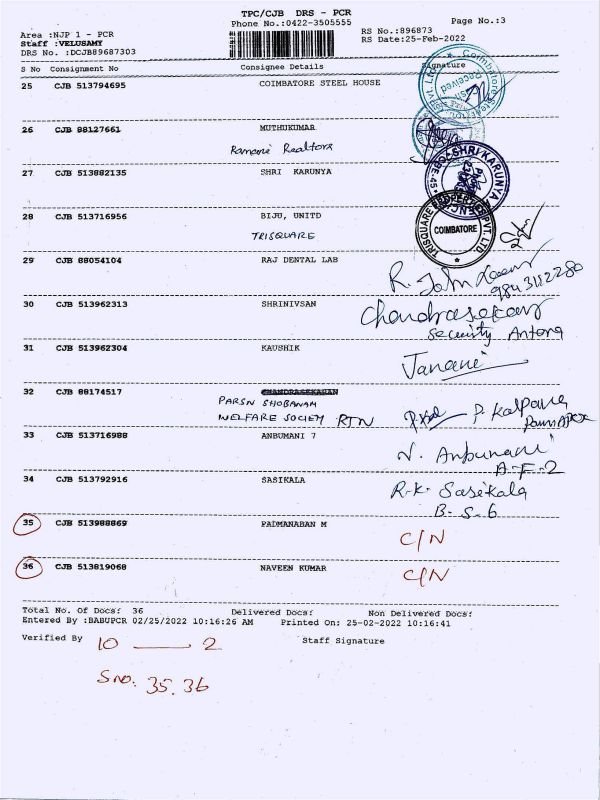 TPC/CJB DRS - PCR
Phone No.:0422-3505555
Page No.:3
Area :NJP 1 - PCR
RS No.:896873
Staff :VELUSAMY
RS Date:25-Feb-2022
DRS No. :DCJB89687303
S No Consignment No Consignee Details Signature
25 CJB 513794695 COIMBATORE STEEL HOUSE
26 CJB 88127661 MUTHUKUMAR
Ramani Realtors
27 CJB 513882135 SHRI KARUNYA
28 CJB 513716956 BIJU, UNITD
TRISQUARE
COIMBATORE
29 CJB 88054104 RAJ DENTAL LAB
9843112280
30 CJB 513962313 SHRINIVSAN
Chandrasekaran
Security Antora
31 CJB 513962304 KAUSHIK
Janani
32 CJB 88174517 CHANDRASEKARAN
PARSN SHOBANAM
WELFARE SOCIETY RTN
P. Kalpana
33 CJB 513716988 ANBUMANI 7
N. Anbumani
A-F-2
34 CJB 513792916 SASIKALA
R.K. Sasikala
B-S-6
35 CJB 513988869 PADMANABAN M
C/N
36 CJB 513819068 NAVEEN KUMAR
C/N
Total No. Of Docs: 36 Delivered Docs: Non Delivered Docs:
Entered By :BABUPCR 02/25/2022 10:16:26 AM Printed On: 25-02-2022 10:16:41
Verified By 10 — 2 Staff Signature
S no: 35.36